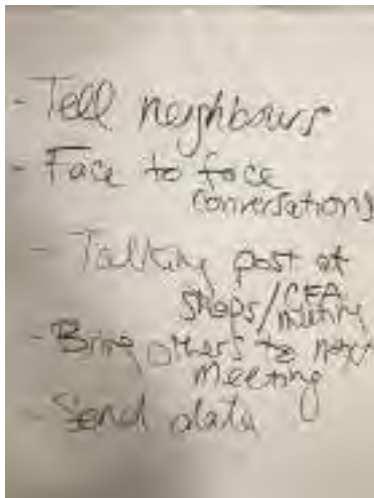 - Tell neighbours
- Face to face
conversations
- Talking post at
shops/CFA
meeting
- Bring others to next
meeting
- Send data